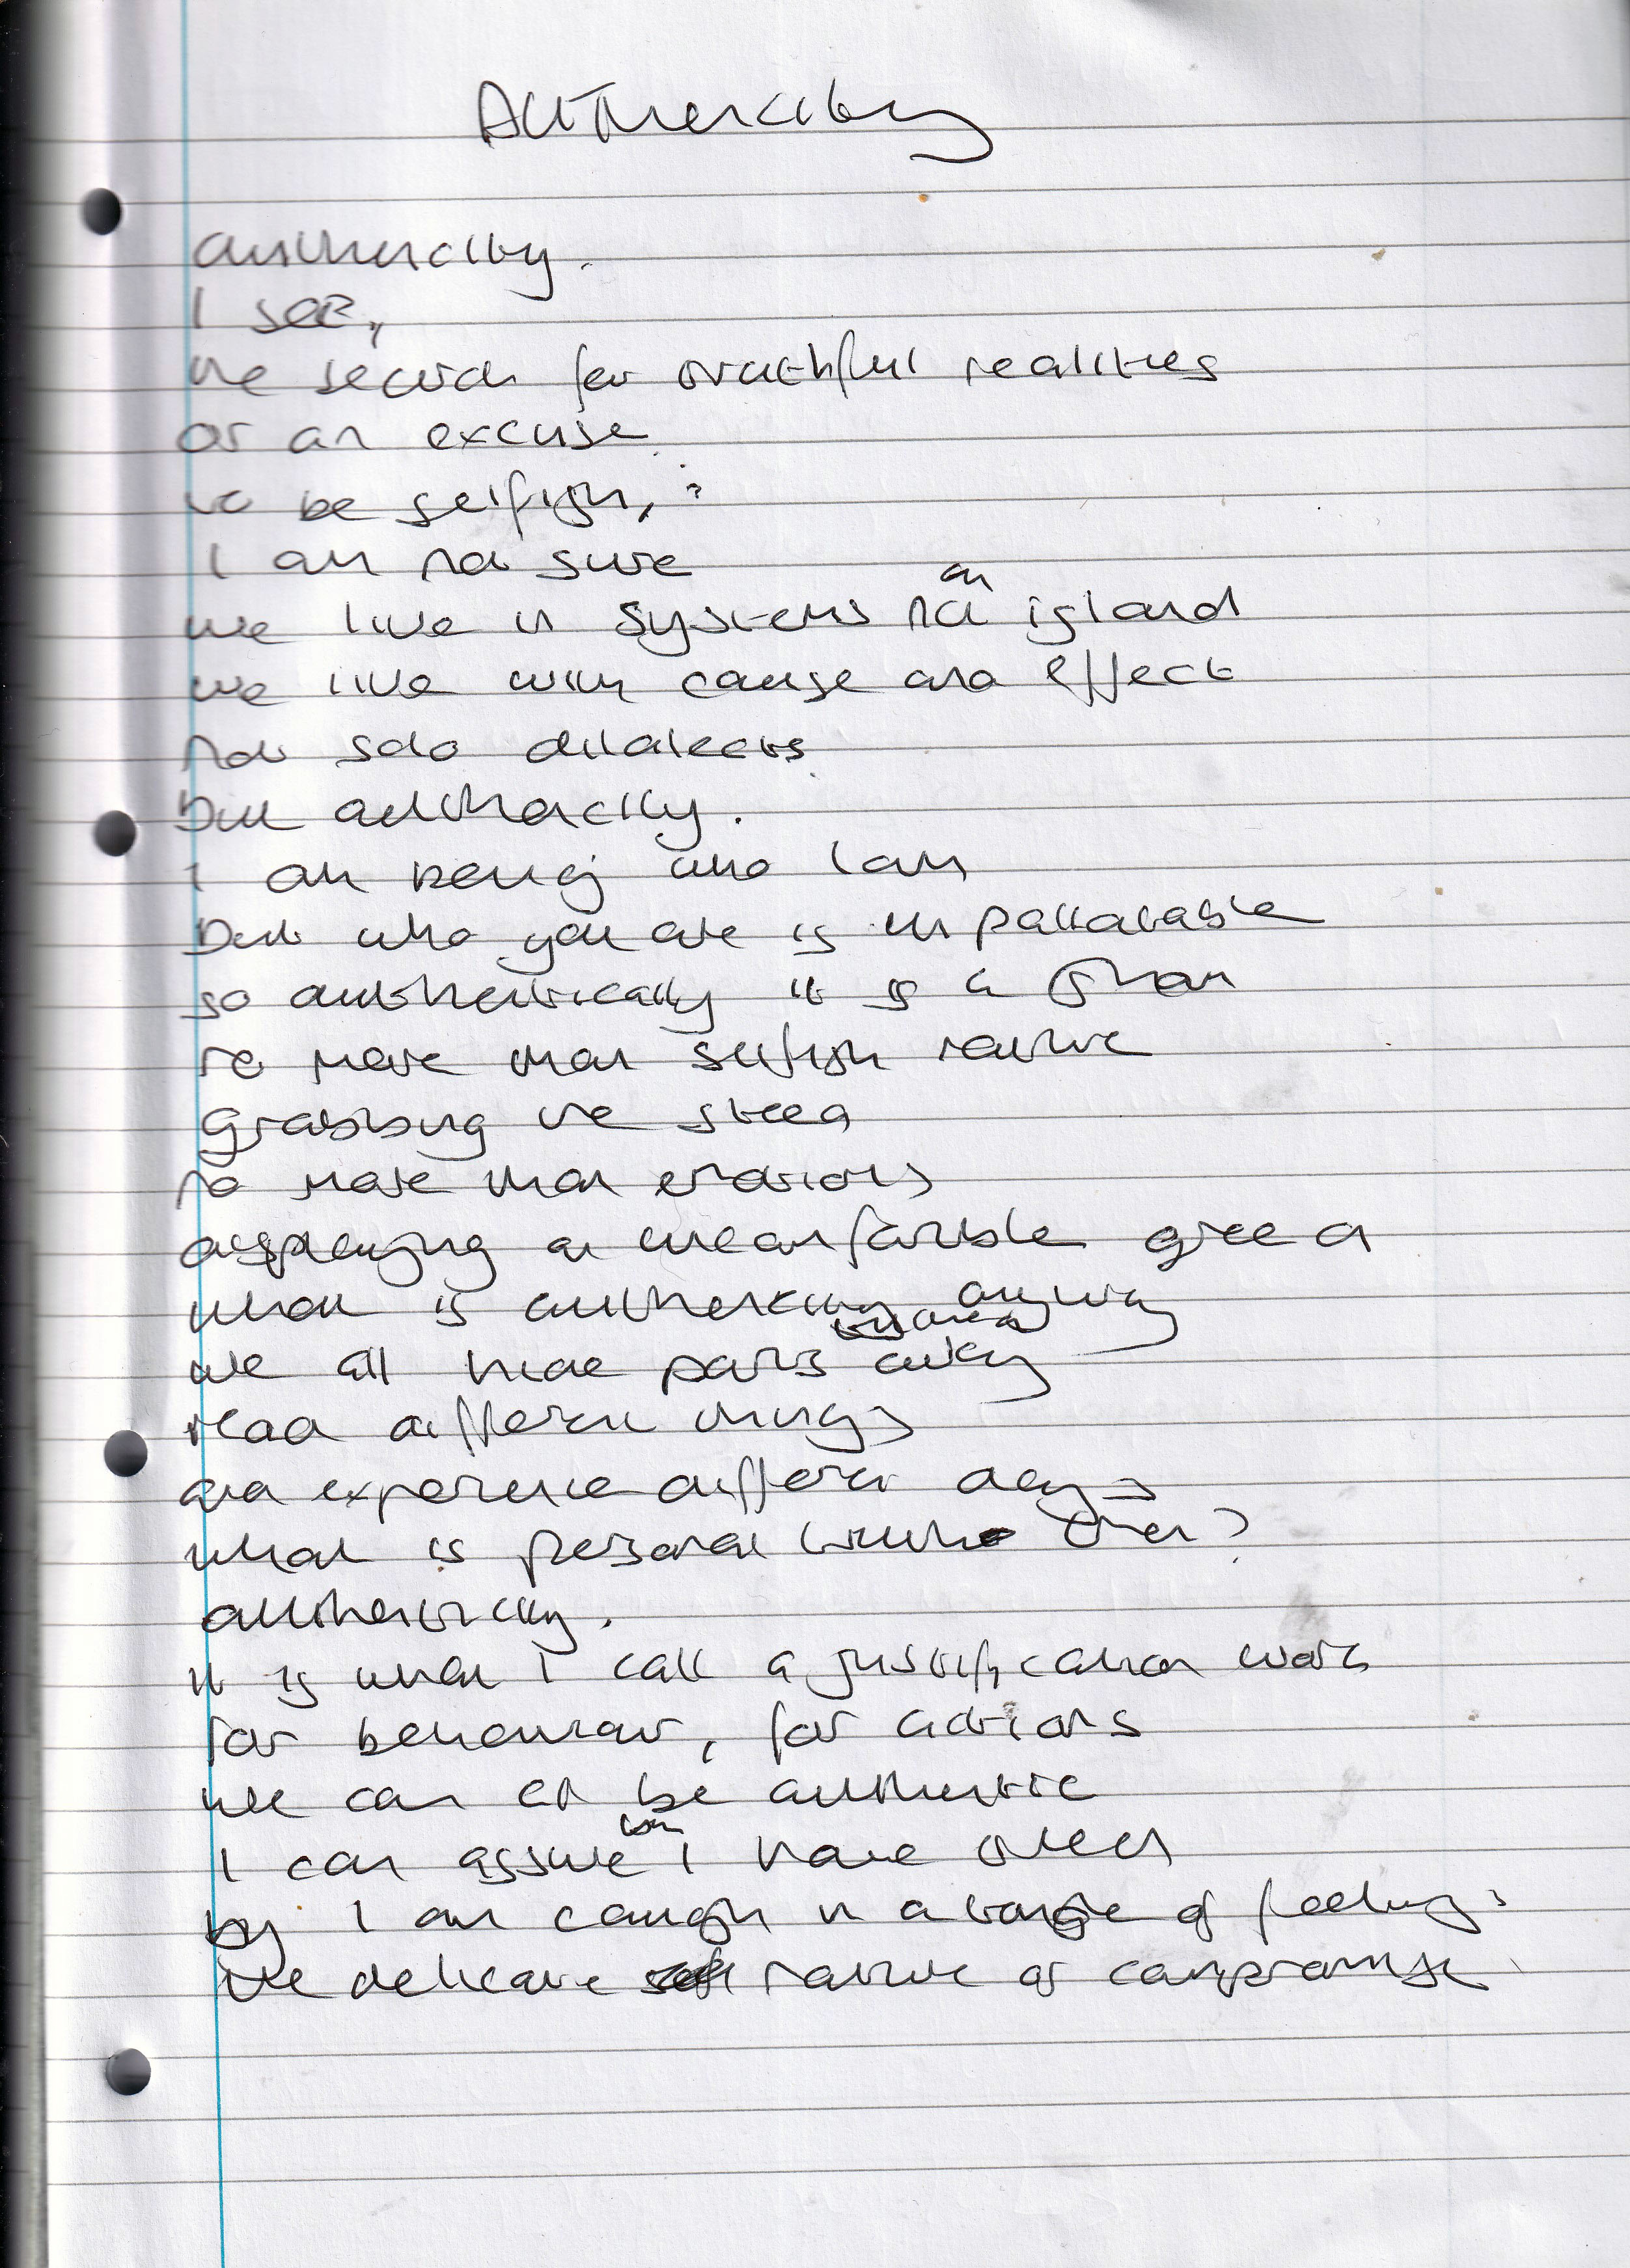 Authencity
authencity.
I see,
the search for truthful realities
or an excuse
to be selfish,?
I am not sure
we live in systems not an island
we live with cause and effect
not solo dilalects
but authencity.
I am being who I am
but who you are is unpallatable
so authentically it is a
no more than selfish nature
grabbing the steed
no more than emotions
displaying an uncomfortable greed
what is authencity anyway
we all hide parts away
read different things
and experience different days
what is personal truth then?
authenticity.
it is what I call a justification word
for behaviour, for actions
we can all be authentic
I can assure you I have tried
by I am caught in a of feelings
the delicate nature of compromise